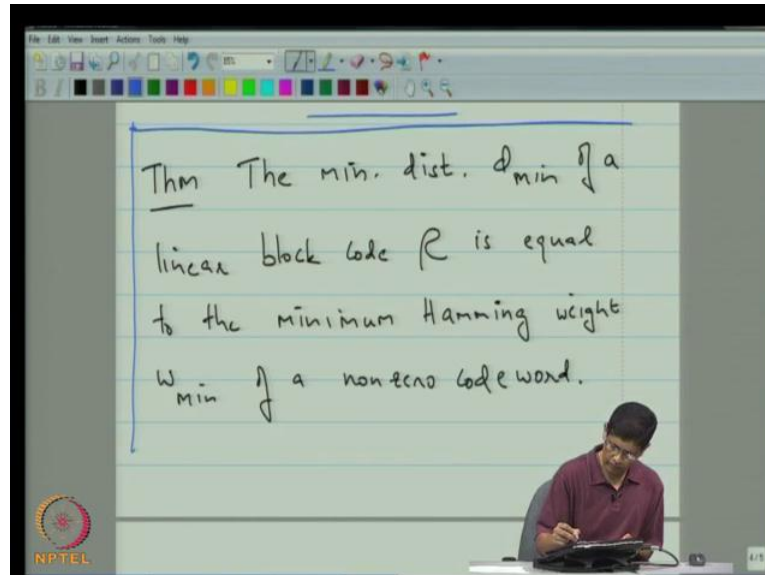 File Edit View Insert Actions Tools Help
Thm The min. dist. d min of a
linear block code C is equal
to the minimum Hamming weight
w min of a nonzero codeword.
NPTEL